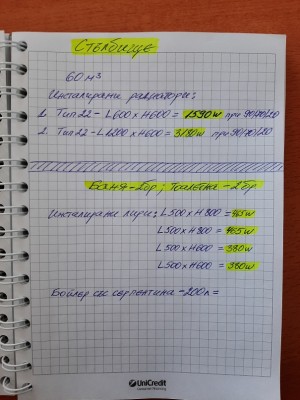 Стълбище
60 м³
Инсталирани радиатори:
1. Тип 22 - L600 x H600 = 1590w при 90/70/20
2. Тип 22 - L1200 x H600 = 3180w при 90/70/20
Баня - 2бр; Тоалетна - 2бр
Инсталирани лири: L500 x H800 = 465w
L500 x H800 = 465w
L500 x H600 = 380w
L500 x H600 = 380w
Бойлер със серпентина - 200л =
UniCredit